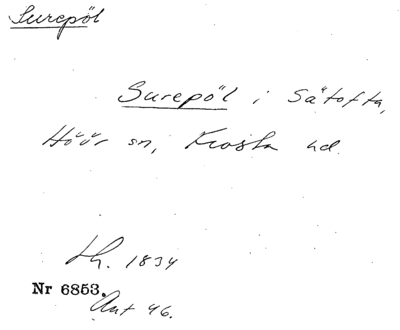 Surepöl
Surepöl i Sätofta,
Höör sn, Frosta hd.
Lh. 1834
Nr 6853.
Ant 46.